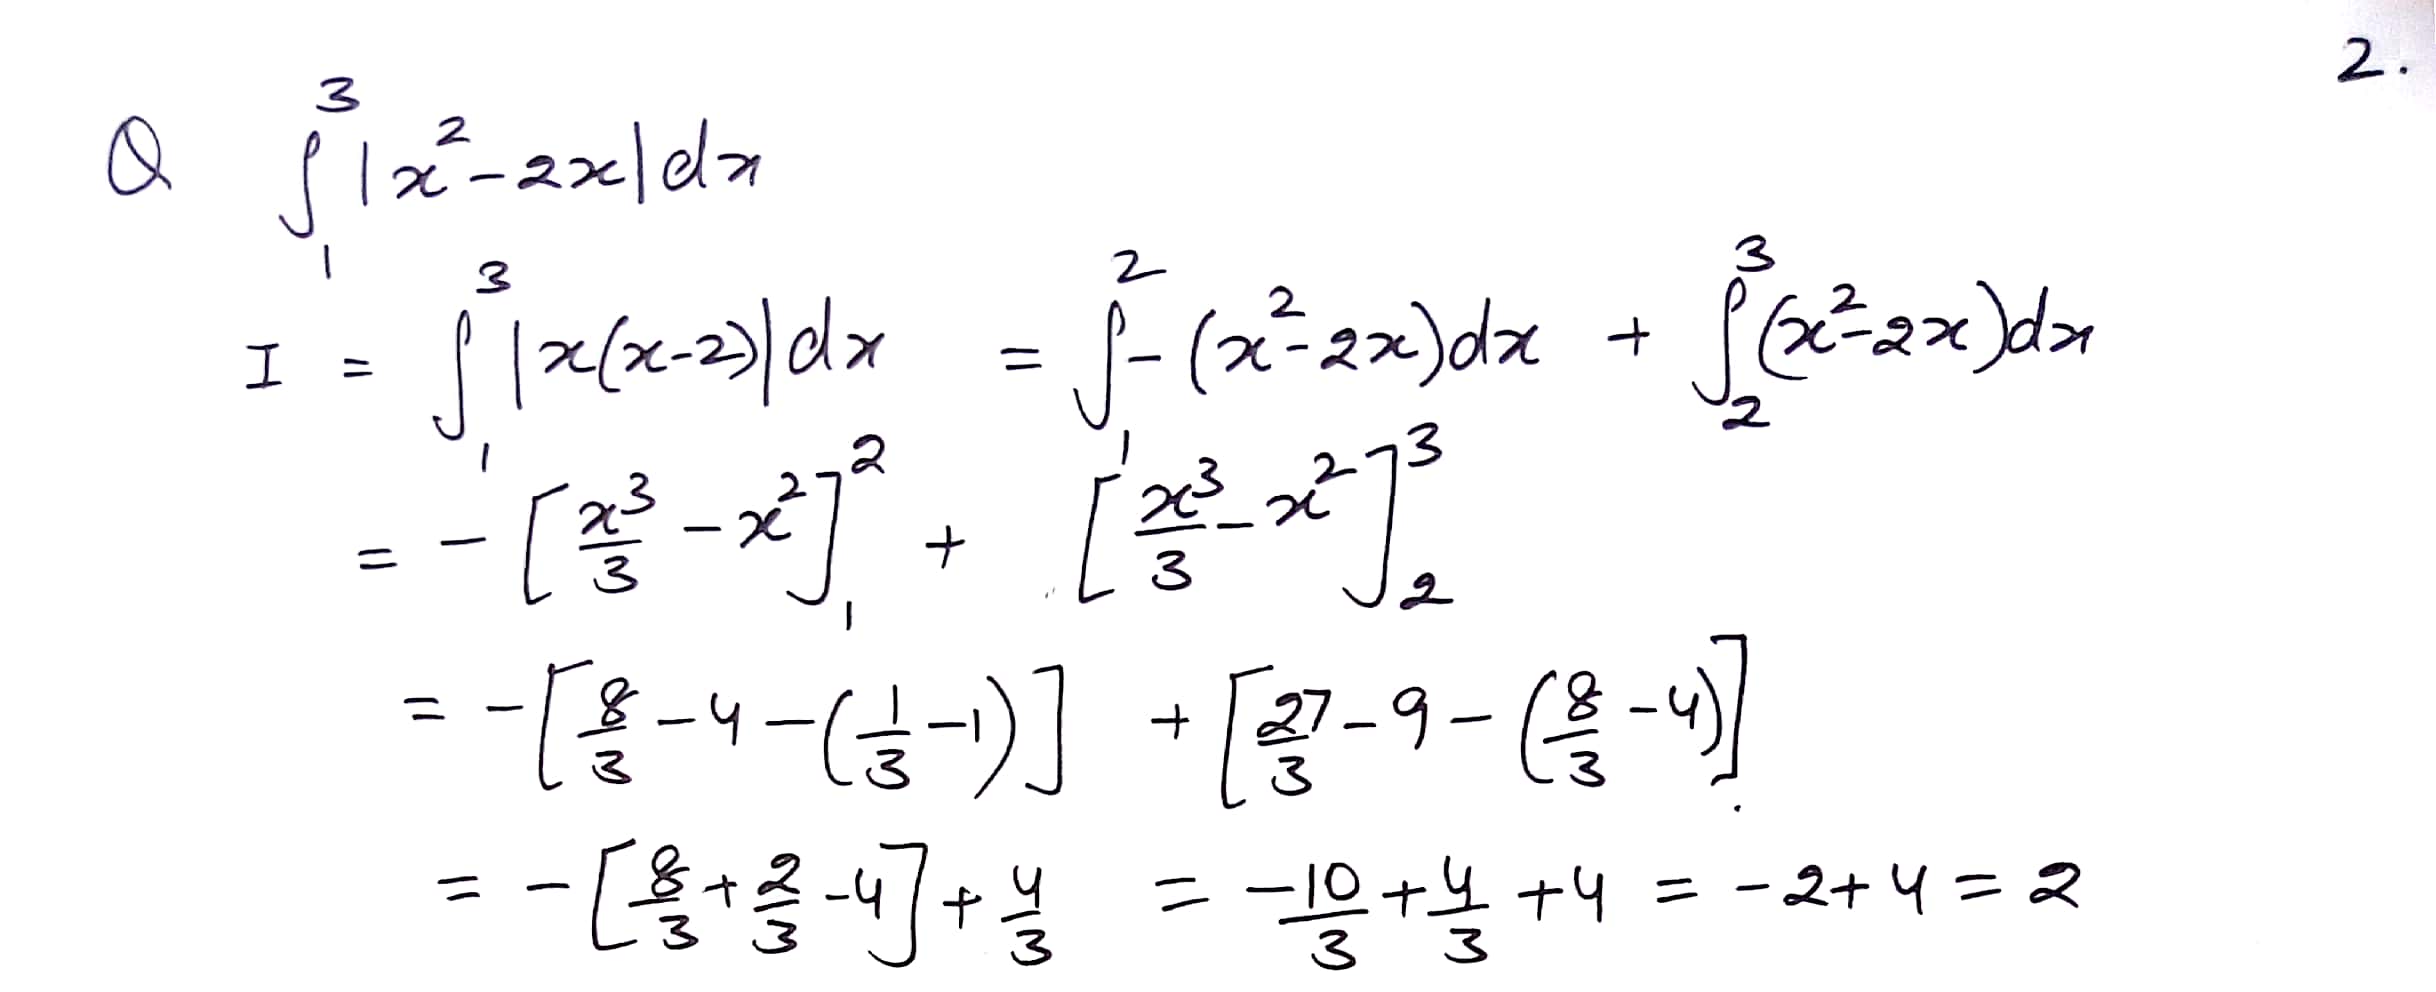 2.
Q ∫₁³ |x²-2x|dx
I = ∫₁³ |x(x-2)|dx = ∫₁² -(x²-2x)dx + ∫₂³ (x²-2x)dx
= -[x³/3 - x²]₁² + [x³/3 - x²]₂³
= -[8/3 - 4 - (1/3 - 1)] + [27/3 - 9 - (8/3 - 4)]
= -[8/3 + 2/3 - 4] + 4/3 = -10/3 + 4/3 + 4 = -2 + 4 = 2